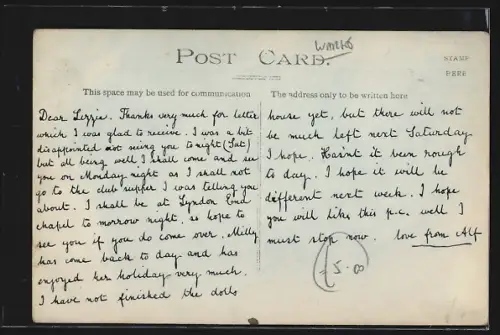 Warks
POST CARD.
STAMP
HERE
This space may be used for communication
The address only to be written here
Dear Lizzie. Thanks very much for letter
which I was glad to receive. I was a bit
disappointed not seeing you to night (Sat)
but all being well I shall come and see
you on Monday night as I shall not
go to the club supper I was telling you
about. I shall be at Lyndon End
chapel to morrow night, so hope to
see you if you do come over. Milly
has come back to day and has
enjoyed her holiday very much.
I have not finished the dolls
house yet, but there will not
be much left next Saturday
I hope. Hasn't it been rough
to day. I hope it will be
different next week. I hope
you will like this p.c. well I
must stop now. love from Alf
5-00